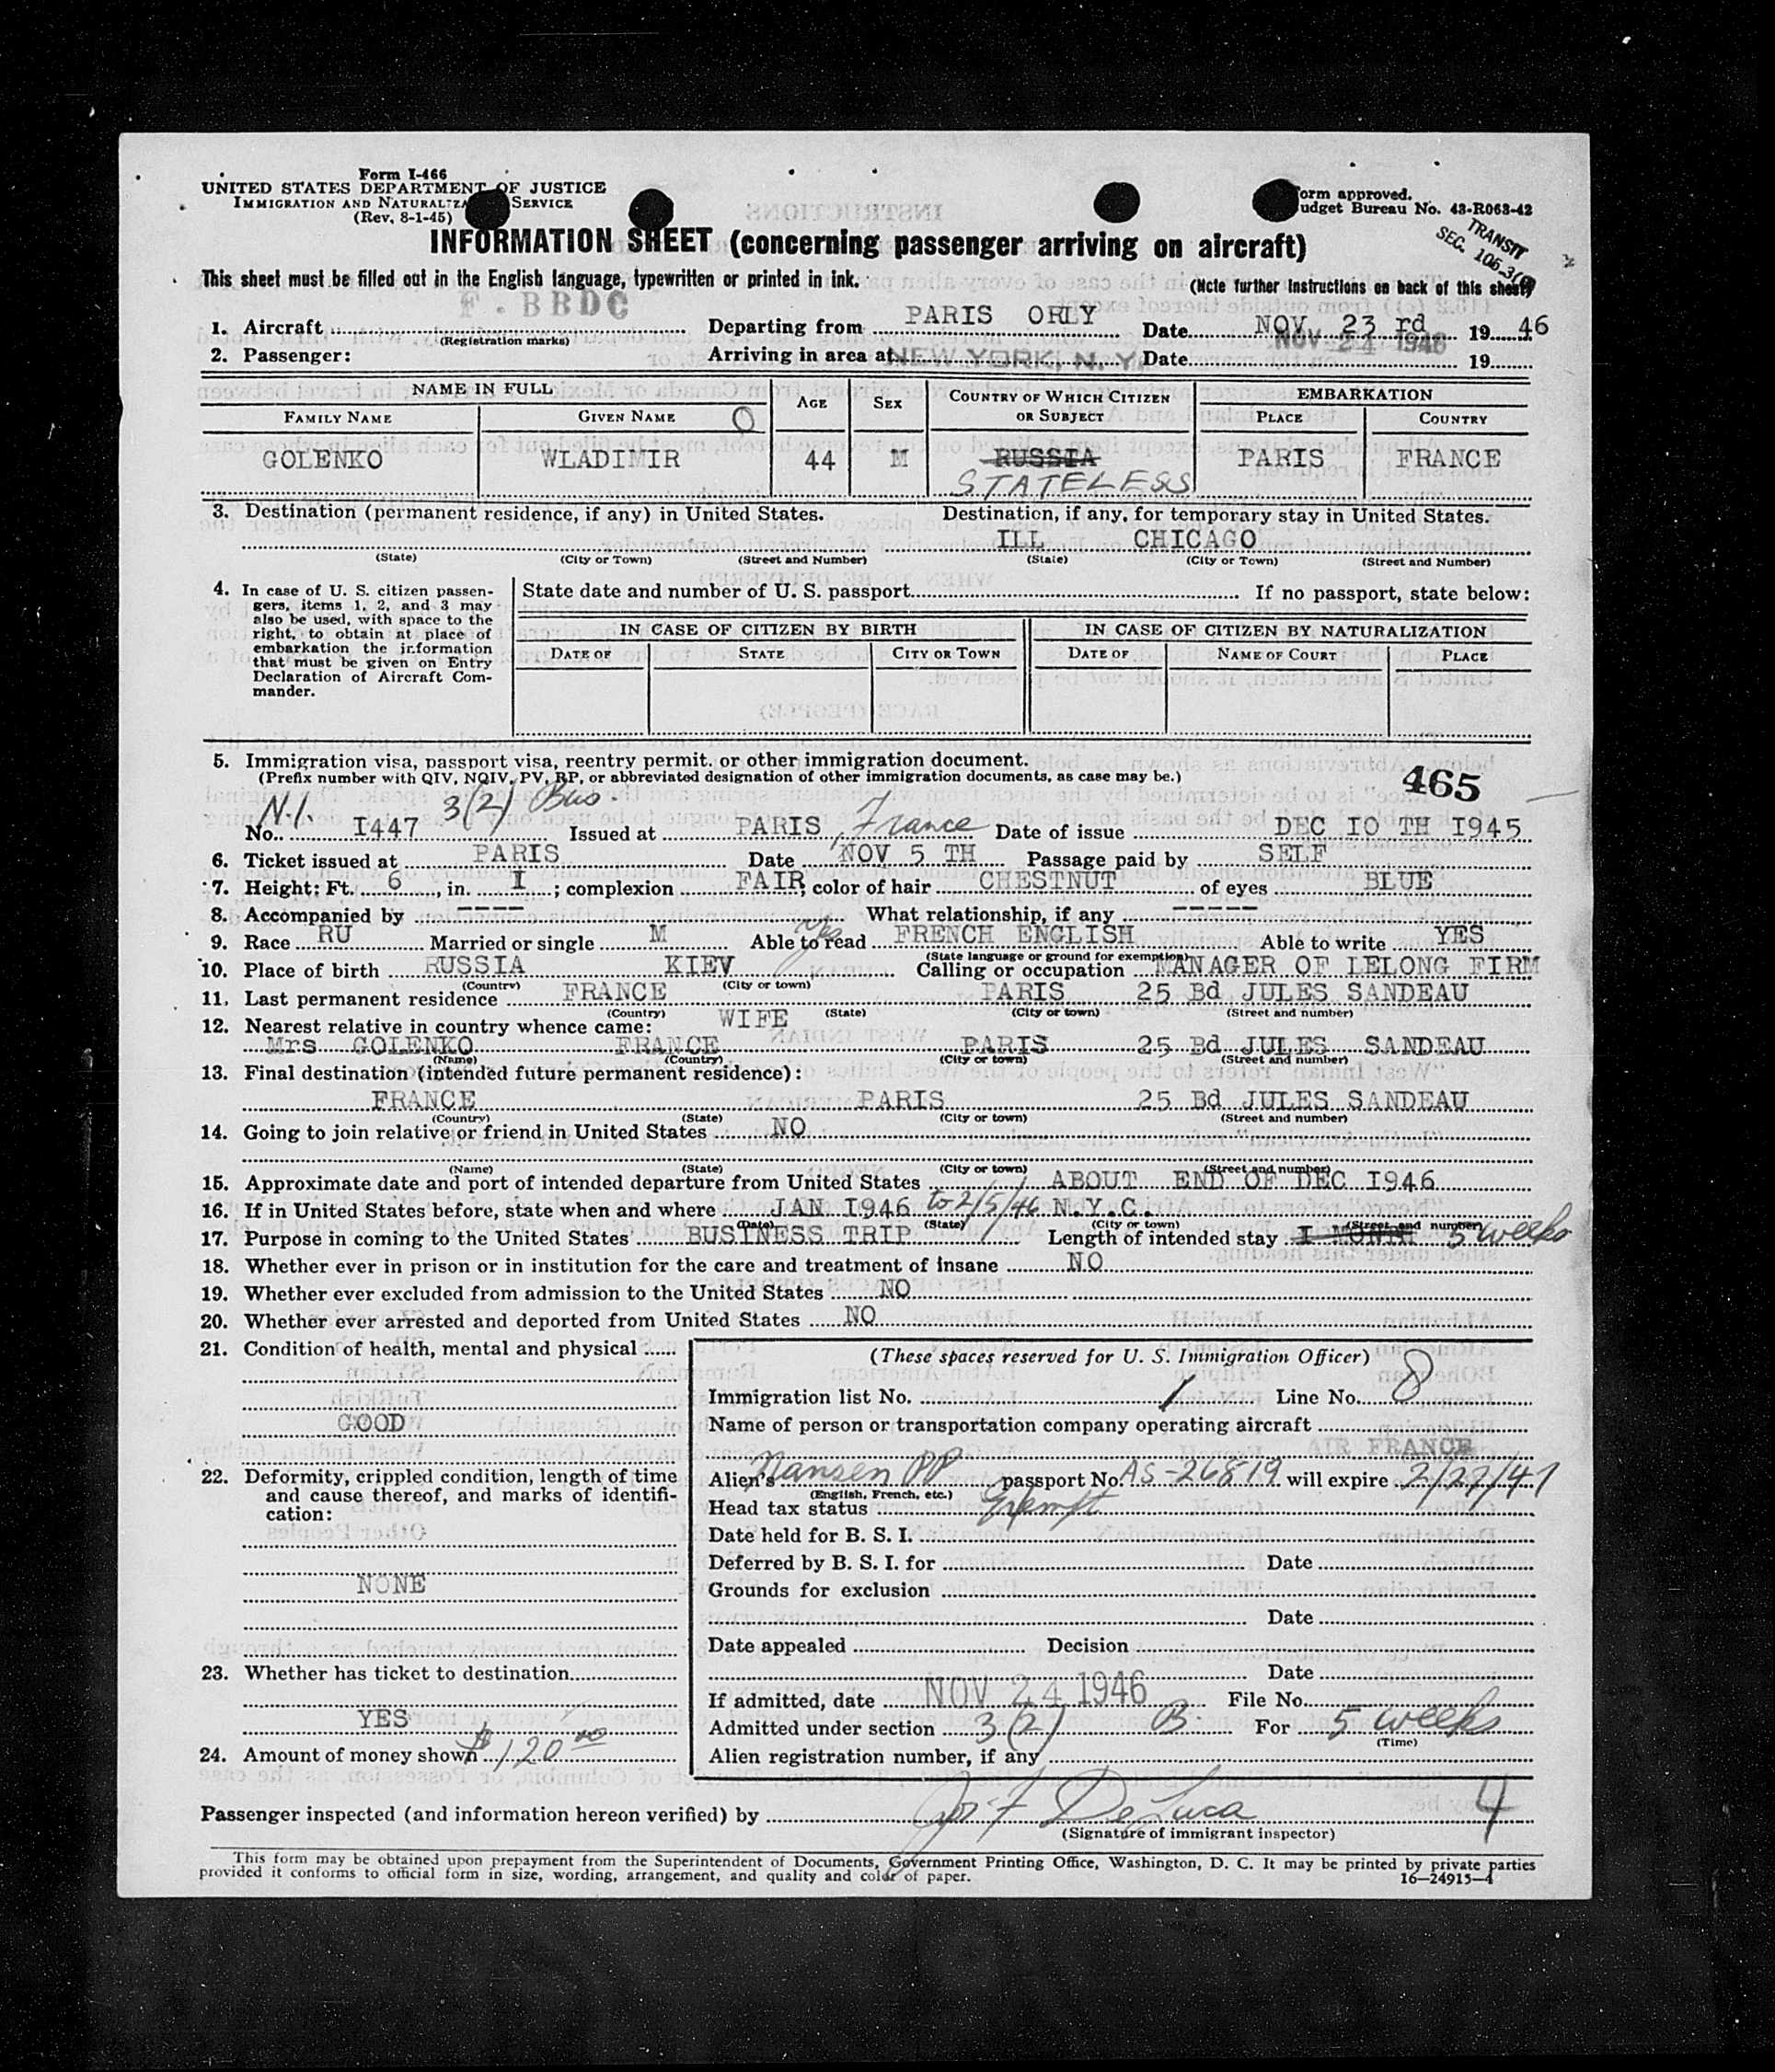 Form I-466
UNITED STATES DEPARTMENT OF JUSTICE
IMMIGRATION AND NATURALIZA SERVICE
(Rev. 8-1-45)
orm approved.
udget Bureau No. 43-R063-42
TRANSIT
SEC. 105.3(
INFORMATION SHEET (concerning passenger arriving on aircraft)
This sheet must be filled out in the English language, typewritten or printed in ink.
(Note further instructions on back of this sheet)
F. BBDC
1. Aircraft Departing from PARIS ORLY Date NOV. 23 rd 1946
(Registration marks)
NOV 24 1946
2. Passenger: Arriving in area at NEW YORK, N. Y. Date 19
NAME IN FULL AGE SEX COUNTRY OF WHICH CITIZEN OR SUBJECT EMBARKATION
FAMILY NAME GIVEN NAME O PLACE COUNTRY
GOLENKO WLADIMIR 44 M RUSSIA PARIS FRANCE
STATELESS
3. Destination (permanent residence, if any) in United States. Destination, if any, for temporary stay in United States.
ILL CHICAGO
(State) (City or Town) (Street and Number) (State) (City or Town) (Street and Number)
4. In case of U. S. citizen passengers, items 1, 2, and 3 may also be used, with space to the right, to obtain at place of embarkation the information that must be given on Entry Declaration of Aircraft Commander.
State date and number of U. S. passport If no passport, state below:
IN CASE OF CITIZEN BY BIRTH IN CASE OF CITIZEN BY NATURALIZATION
DATE OF STATE CITY OR TOWN DATE OF NAME OF COURT PLACE
5. Immigration visa, passport visa, reentry permit, or other immigration document.
(Prefix number with QIV, NQIV, PV, RP, or abbreviated designation of other immigration documents, as case may be.)
465
N.I. 3(2) Bus.
No. I447 Issued at PARIS, France Date of issue DEC IO TH I945
6. Ticket issued at PARIS Date NOV 5 TH Passage paid by SELF
7. Height: Ft. 6, in. I; complexion FAIR, color of hair CHESTNUT of eyes BLUE
8. Accompanied by ---- What relationship, if any -----
9. Race RU Married or single M Able to read yes FRENCH ENGLISH Able to write YES
(State language or ground for exemption)
10. Place of birth RUSSIA KIEV Calling or occupation MANAGER OF LELONG FIRM
(Country) (City or town)
11. Last permanent residence FRANCE PARIS 25 Bd JULES SANDEAU
(Country) (State) (City or town) (Street and number)
12. Nearest relative in country whence came: WIFE
Mrs GOLENKO FRANCE PARIS 25 Bd JULES SANDEAU
(Name) (Country) (City or town) (Street and number)
13. Final destination (intended future permanent residence):
FRANCE PARIS 25 Bd JULES SANDEAU
(Country) (State) (City or town) (Street and number)
14. Going to join relative or friend in United States NO
(Name) (State) (City or town) (Street and number)
15. Approximate date and port of intended departure from United States ABOUT END OF DEC I946
16. If in United States before, state when and where JAN I946 to 2/5/46 N.Y.C.
(Date) (State) (City or town) (Street and number)
17. Purpose in coming to the United States BUSINESS TRIP Length of intended stay I MONTH 5 weeks
18. Whether ever in prison or in institution for the care and treatment of insane NO
19. Whether ever excluded from admission to the United States NO
20. Whether ever arrested and deported from United States NO
21. Condition of health, mental and physical
GOOD
22. Deformity, crippled condition, length of time and cause thereof, and marks of identification:
NONE
23. Whether has ticket to destination
YES
24. Amount of money shown $120 00
(These spaces reserved for U. S. Immigration Officer)
Immigration list No. 1 Line No. 8
Name of person or transportation company operating aircraft
AIR FRANCE
Alien's Nansen PP passport No. AS-26819 will expire 2/27/47
(English, French, etc.)
Head tax status Exempt
Date held for B. S. I.
Deferred by B. S. I. for Date
Grounds for exclusion
Date
Date appealed Decision
Date
If admitted, date NOV 24 1946 File No.
Admitted under section 3(2) B. For 5 weeks
(Time)
Alien registration number, if any
Passenger inspected (and information hereon verified) by Jos F DeLuca 4
(Signature of immigrant inspector)
This form may be obtained upon prepayment from the Superintendent of Documents, Government Printing Office, Washington, D. C. It may be printed by private parties
provided it conforms to official form in size, wording, arrangement, and quality and color of paper.
16—24915-4